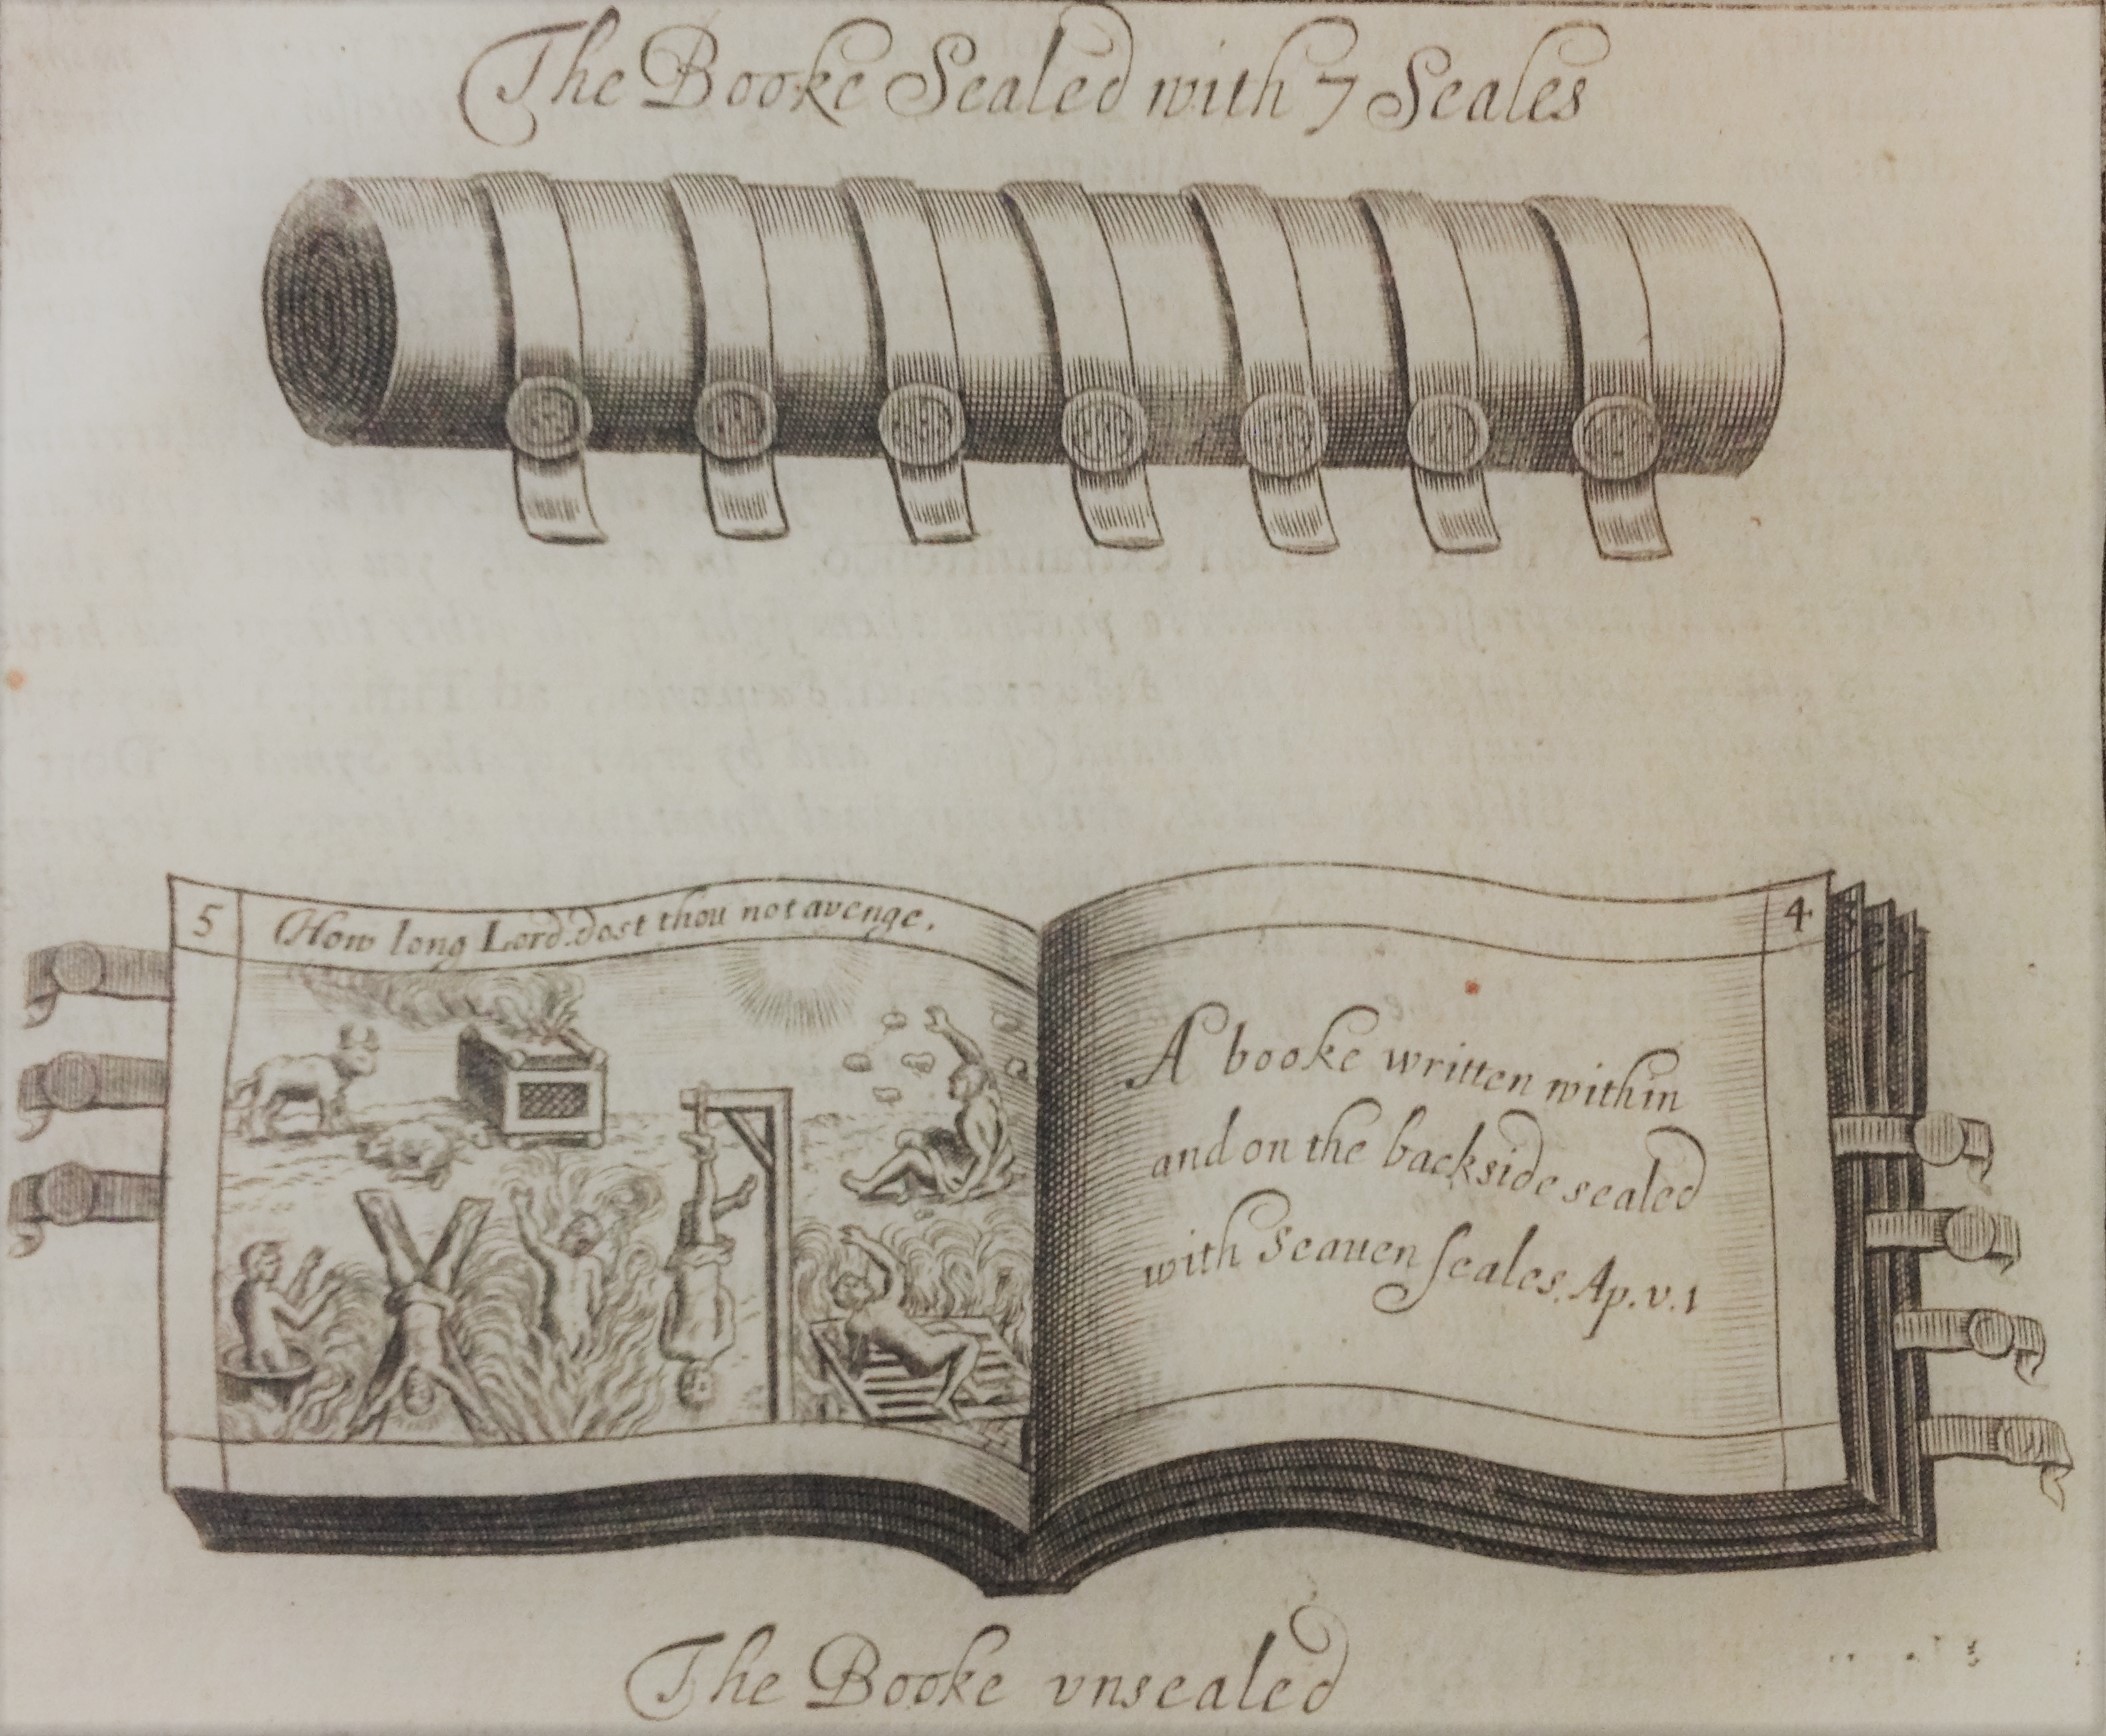 The Booke Sealed with 7 Seales
5
How long Lord dost thou not avenge.
4
A booke written within
and on the backside sealed
with Seauen ſeales. Ap. v. 1
The Booke vnsealed